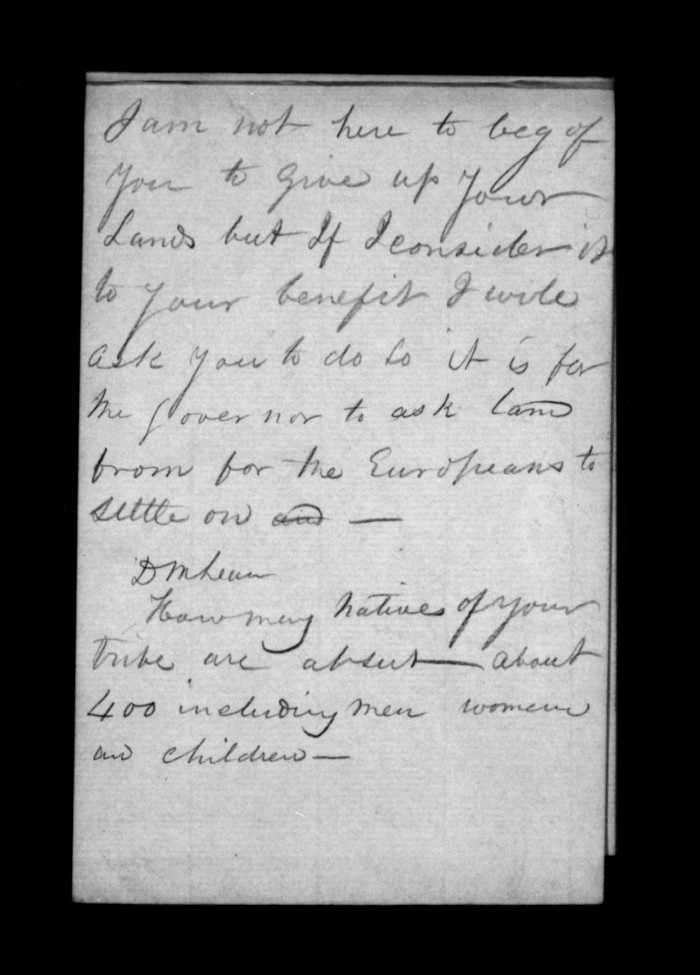 I am not here to beg of
you to give up your
Lands but If I consider it
to your benefit I will
ask you to do so it is for
the governor to ask land
from for the Europeans to
settle on and —
D McLean
How many Natives of your
tribe are absent — about
400 including men women
and children —